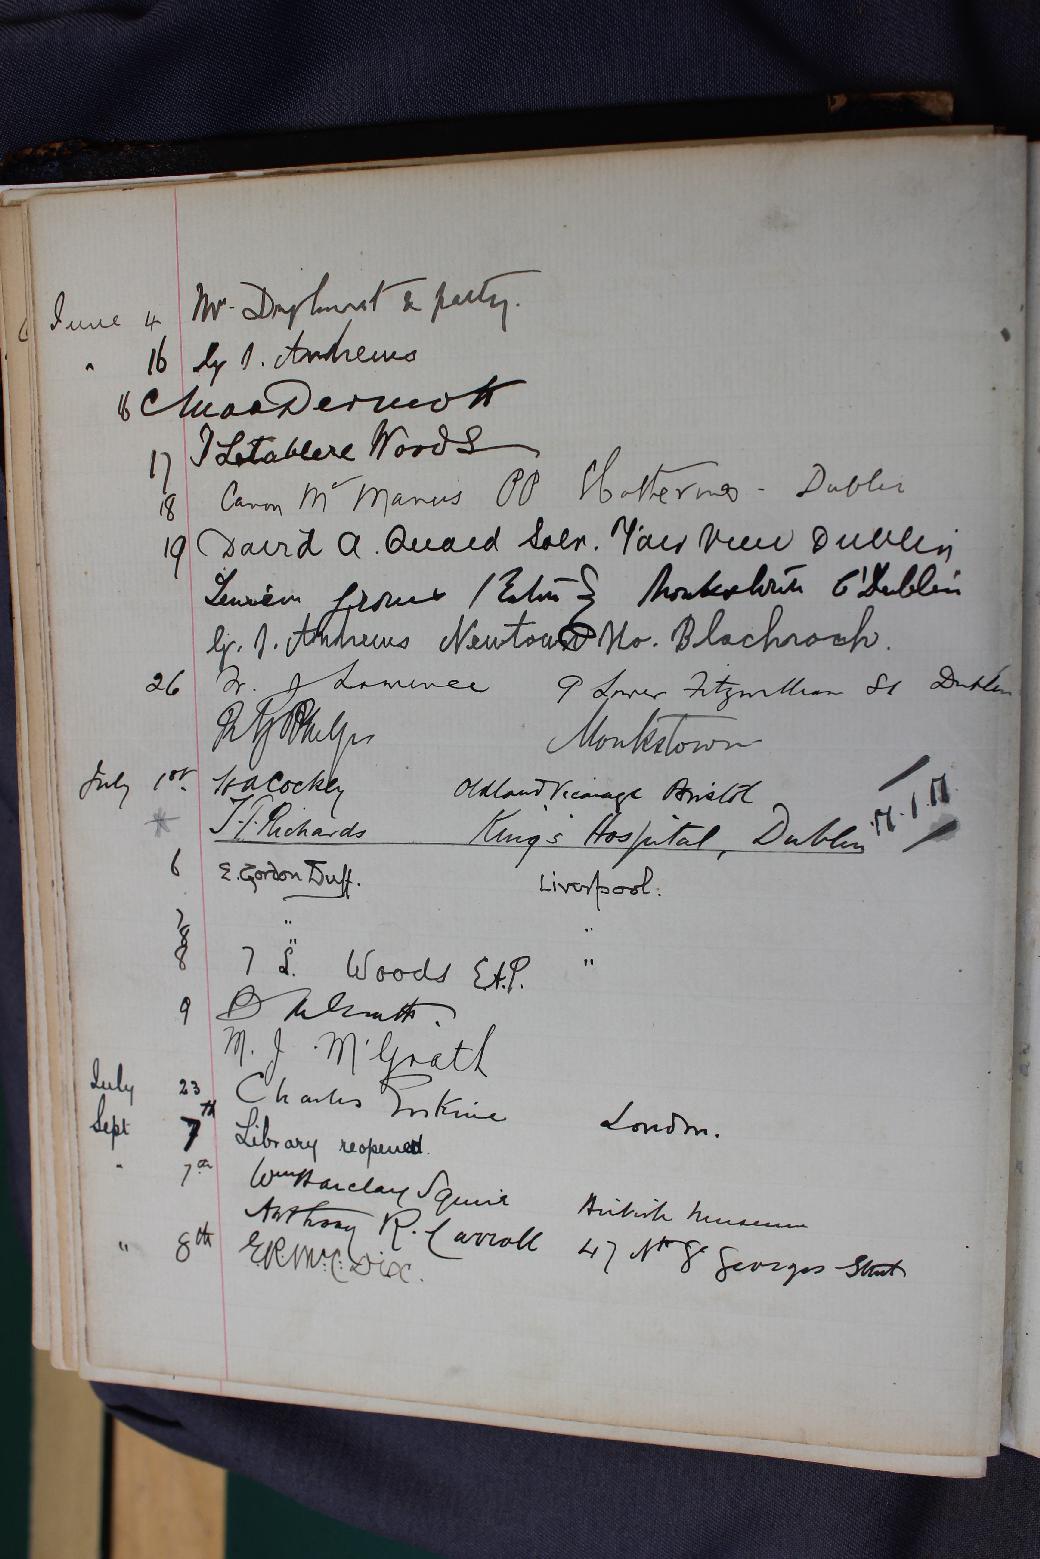 June 4 Mr. Dryhurst & party.
" 16 G. J. Andrews
16 C MacDermott
17 J Letablere Woods
18 Canon McManus PP Dublin
19 David A. Quaid Solr. Fair View Dublin
Monkstown Co Dublin
G. J. Andrews Newtown Ho. Blackrock.
26 W. J Lawrence 9 Lower Fitzwilliam St Dublin
Phelps Monkstown
July 1st. H A Cockey Oldland Vicarage Bristol
J.F. Richards King's Hospital, Dublin
6 E. Gordon Duff. Liverpool.
7 " "
8 "
8 7 S. Woods "
9 McGrath.
M. J. McGrath
July 23 Charles Erskine London.
Sept 7th Library reopened.
" 7th Wm Barclay Squire British Museum
Anthony R. Carroll 47 Nth Gt Georges Street
" 8th E R McC. Dix.